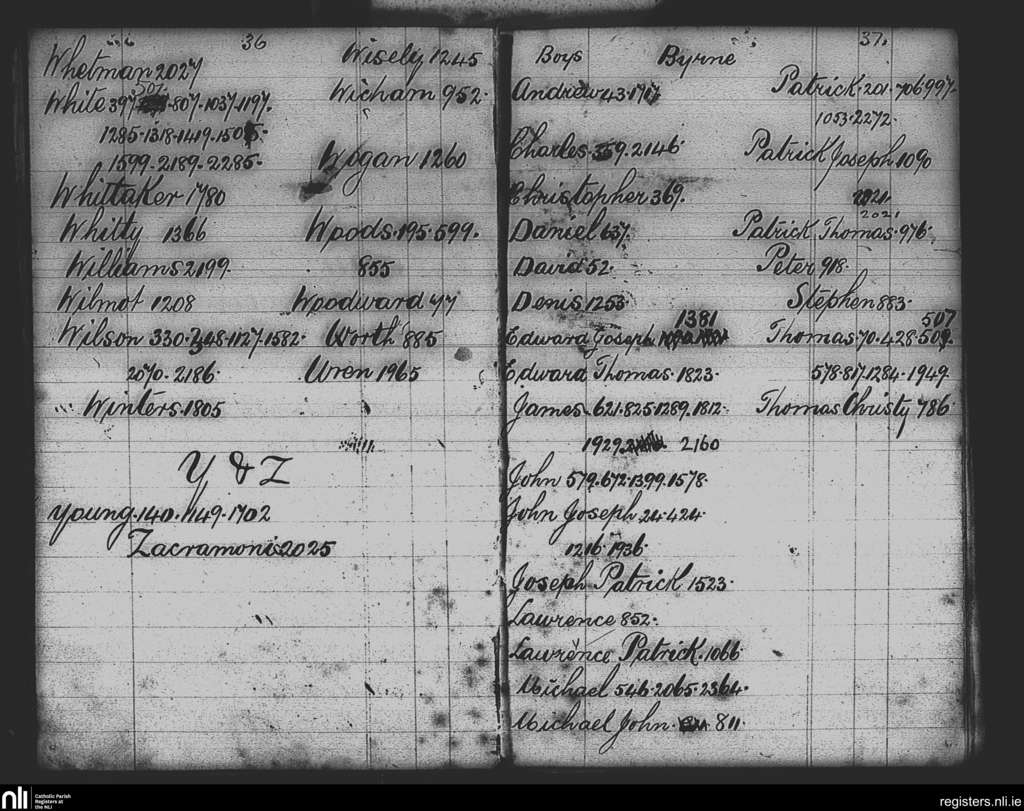 36
Whetman 2027
White 397 507 807. 1037. 1197.
1285. 1318. 1419. 1505.
1599. 2189. 2285.
Whittaker 1780
Whitty 1366
Williams 2199.
Wilmot 1208
Wilson 330. 348. 1127. 1582.
2070. 2186.
Winters. 1805
Wisely 1245
Wicham 952.
Wigan 1260
Woods. 195. 599.
855
Woodward 47
Worth 885
Wren 1965
Y & Z
Young. 140. 1149. 1702
Zacramonis 2025
37.
Boys Byrne
Andrew 43. 1717
Charles. 359. 2146
Christopher 369.
Daniel 637.
David 52.
Denis 1253
1381
Edward Joseph
Edward Thomas. 1823.
James. 621. 825. 1289. 1812.
1929. 2160
John 579. 672. 1399. 1578.
John Joseph 24. 424.
1216. 1936.
Joseph Patrick 1523.
Lawrence 852.
Lawrence Patrick. 1066.
Michael 546. 2065. 2364.
Michael John. 811.
Patrick. 201. 706 997.
1053. 2272.
Patrick Joseph 1090
2021.
2021
Patrick Thomas. 976.
Peter 918.
Stephen 883.
507
Thomas. 70. 428. 509.
578. 817. 1284. 1949.
Thomas Christy 786.
nli
Catholic Parish
Registers at
the NLI
registers.nli.ie